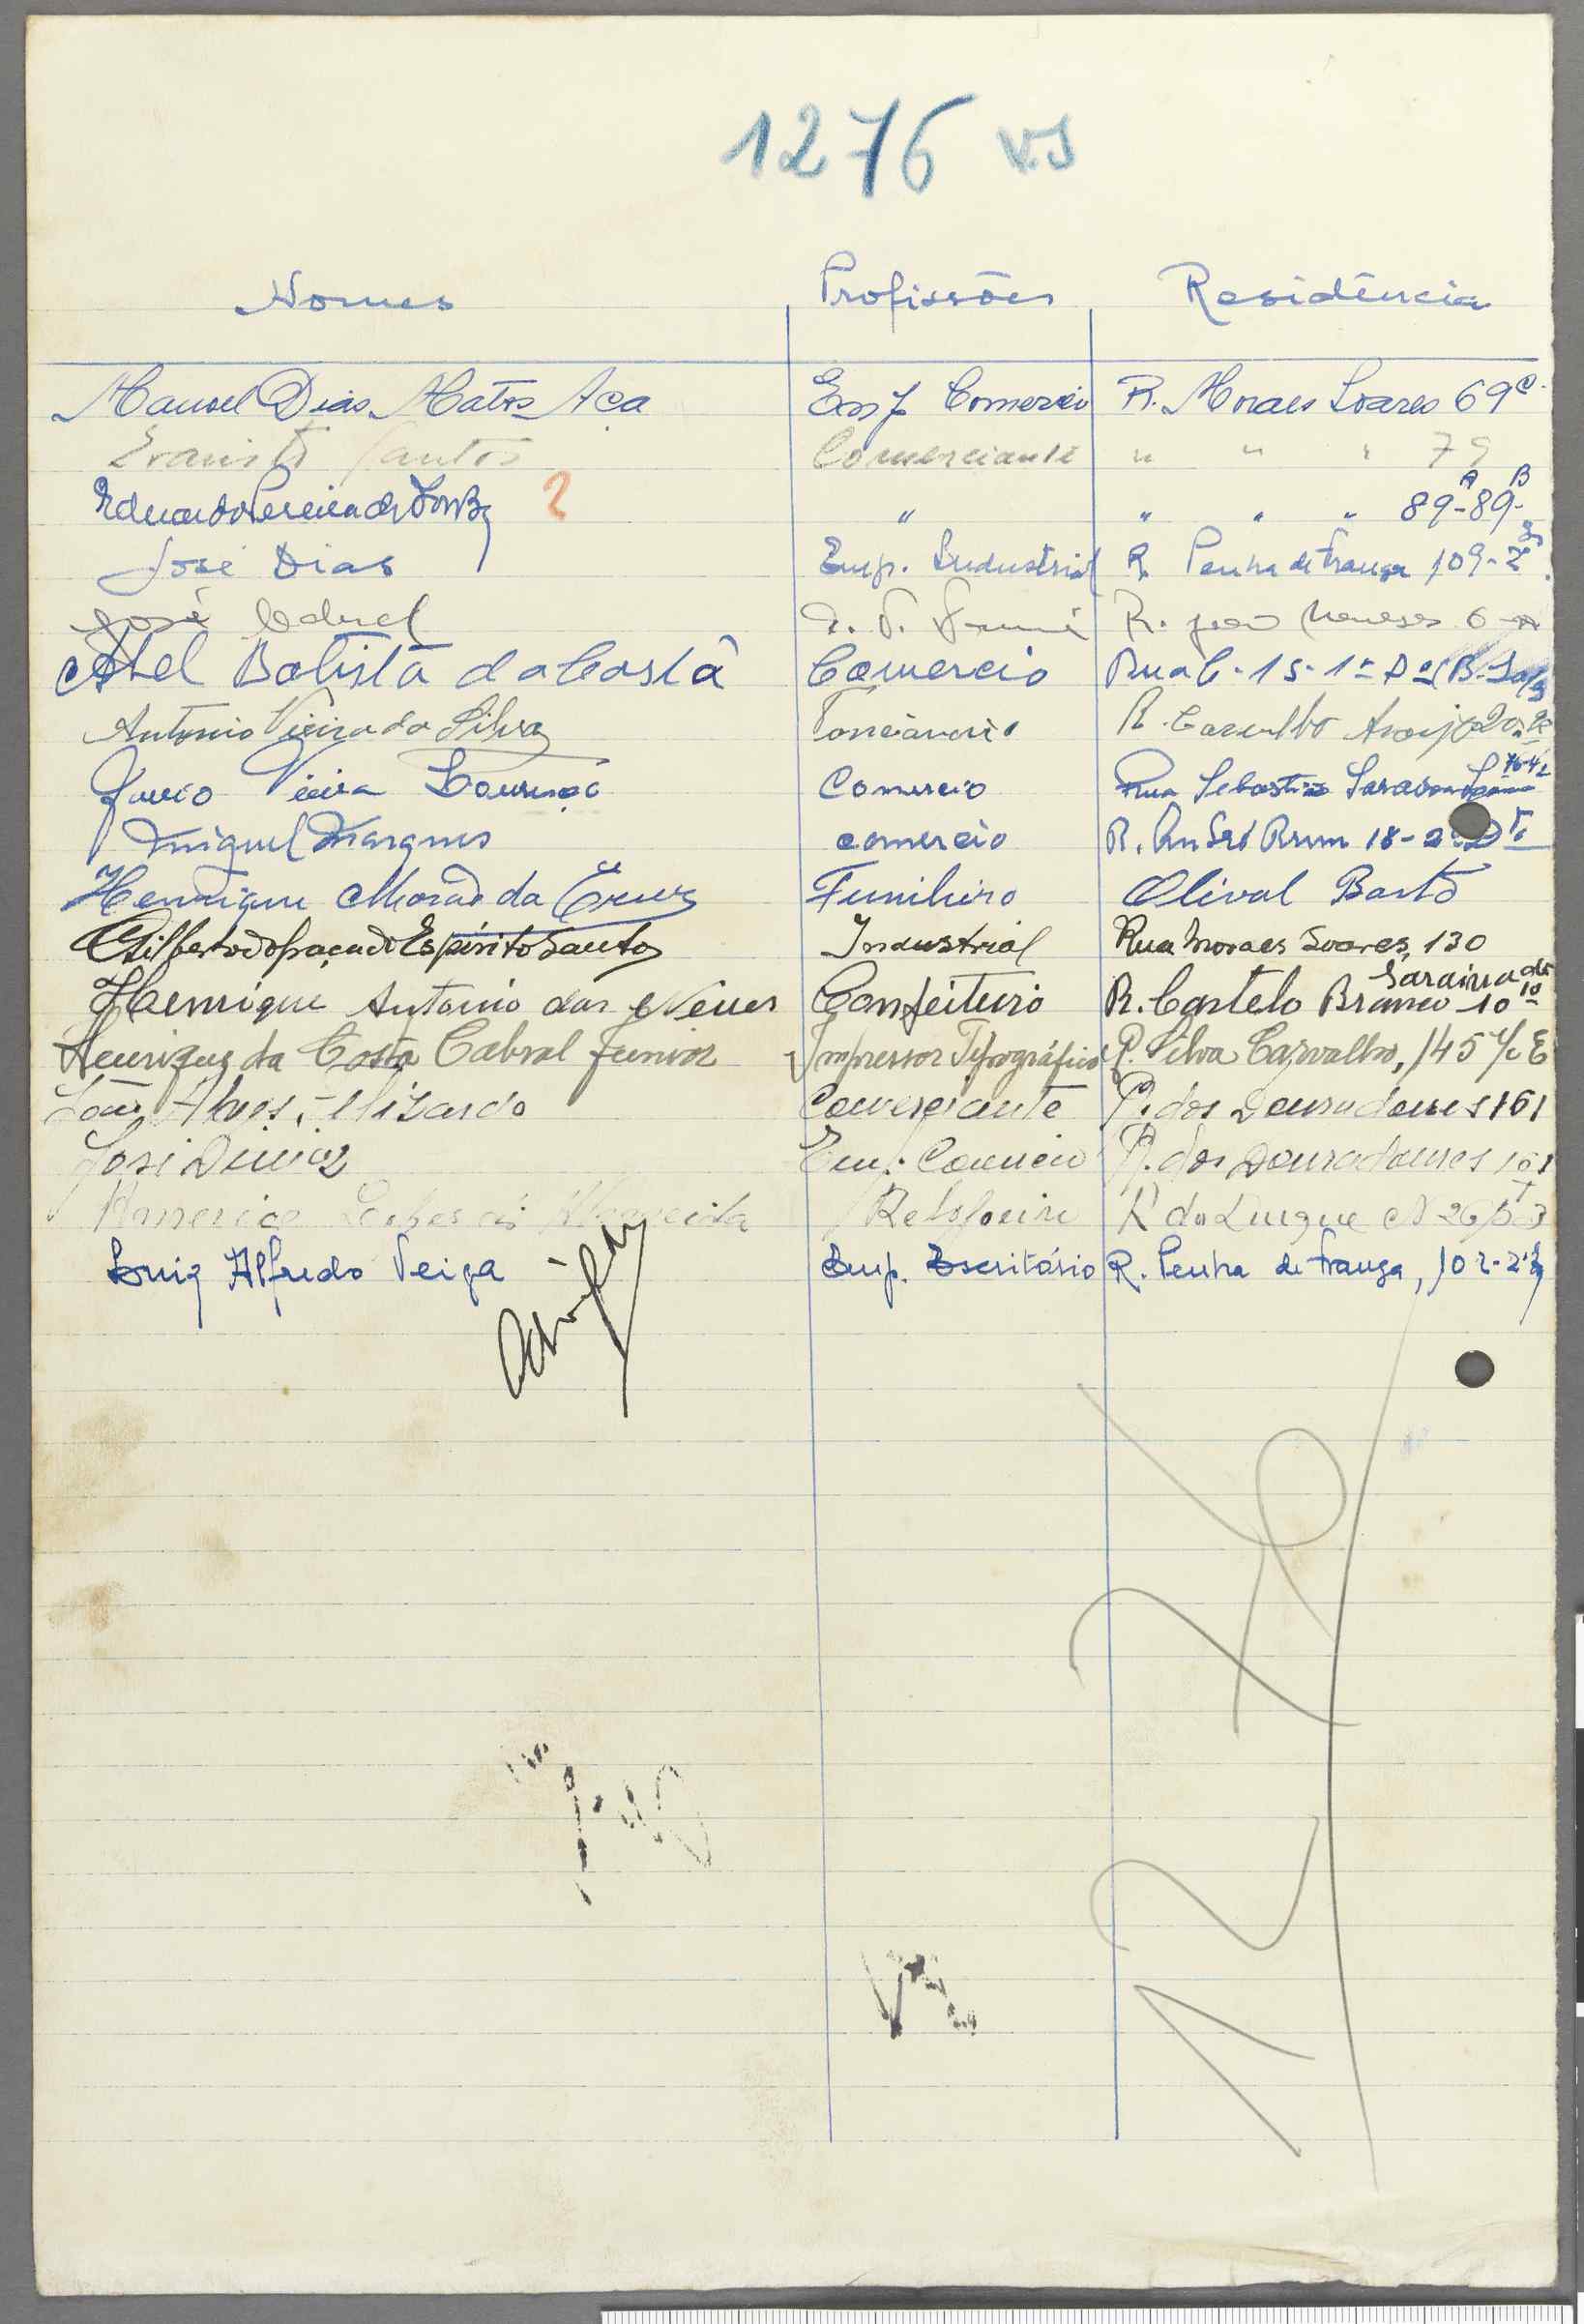 1276 V.S
Nomes Profissões Residência
Manuel Dias Matos Aça Emp Comercio R. Moraes Soares 69 C.
Evaristo Santos Comerciante " " " 79
Eduardo Pereira de 2 " " " " 89-A 89-B
José Dias Emp. Industrial R. Penha de França 109-2º
José R. João Meneses 6
Abel Batista da Costa Comercio Rua C-15-1º
Antonio Vieira da Silva R. Carvalho Araujo
Vieira Lourenço Comercio Rua Sebastião Saraiva
Miguel Marques comercio R. André Brun 18-2º Dto
Henrique Morão da Cruz Funileiro Olival Basto
Gilberto do Espirito Santo Industrial Rua Moraes Soares, 130
Henrique Antonio das Neves Confeiteiro R. Castelo Branco Saraiva 10
Henrique da Costa Cabral Junior Impressor Tipográfico R. Silva Carvalho, 145 r/c E
Alves Elizardo Comerciante R. dos Douradores 161
José Diniz Emp. Comercio R. dos Douradores 161
Americo Lopes de Almeida Relojoeiro R do Duque N 26
Luiz Alfredo Veiga Emp. Escritório R. Penha de França, 102-2º
1276